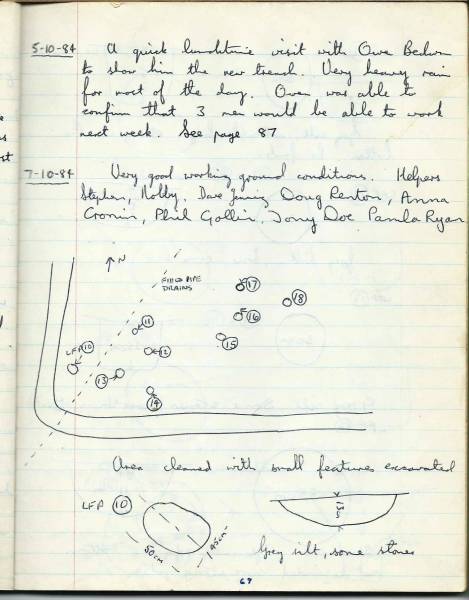 5-10-84 A quick lunchtime visit with Owe Bedwin
to show him the new trench. Very heavy rain
for most of the day. Owen was able to
confirm that 3 men would be able to work
next week. See page 87
7-10-84 Very good working ground conditions. Helpers
Stephen, Robby, Dave Doug Renton, Anna
Cronin, Phil Gollin, Tony Doe Pamla Ryan
↑N
FIELD PIPE
DRAINS
17
18
16
11
15
LFP 10
12
13
14
Area cleaned with small features excavated
LFP 10
50cm
145cm
Grey silt, some stones
67